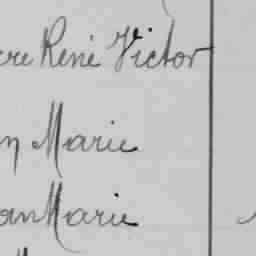 re René Victor
n Marie
an Marie